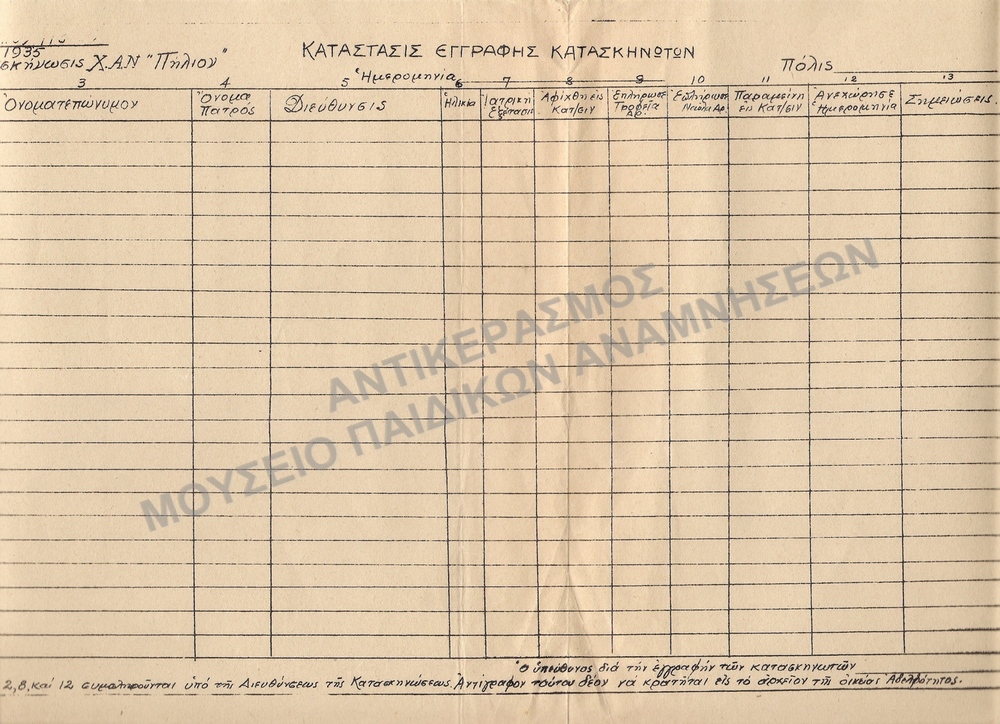 1935
σκήνωσις Χ.Α.Ν "Πήλιον"
ΚΑΤΑΣΤΑΣΙΣ ΕΓΓΡΑΦΗΣ ΚΑΤΑΣΚΗΝΩΤΩΝ
Ἡμερομηνία
Πόλις
3 4 5 6 7 8 9 10 11 12 13
Ὀνοματεπώνυμον
Ὄνομα Πατρός
Διεύθυνσις
Ἡλικία
Ἰατρική Ἐξέτασις
Ἀφίχθη εἰς Κατ/σιν
Ἐπλήρωσε Τροφεῖα Δρ.
Ἐπλήρωσε Ναῦλα Δρ.
Παραμείνη εἰς Κατ/σιν
Ἀνεχώρησε Ἡμερομηνία
Σημειώσεις.
ΑΝΤΙΚΕΡΑΣΜΟΣ
ΜΟΥΣΕΙΟ ΠΑΙΔΙΚΩΝ ΑΝΑΜΝΗΣΕΩΝ
Ὁ ὑπεύθυνος διά τήν ἐγγραφήν τῶν κατασκηνωτῶν
2, 8, καί 12 συμπληροῦνται ὑπό τῆς Διευθύνσεως τῆς Κατασκηνώσεως. Ἀντίγραφον τούτου δέον νά κρατῆται εἰς τό ἀρχεῖον τῆς οἰκείας Ἀδελφότητος.